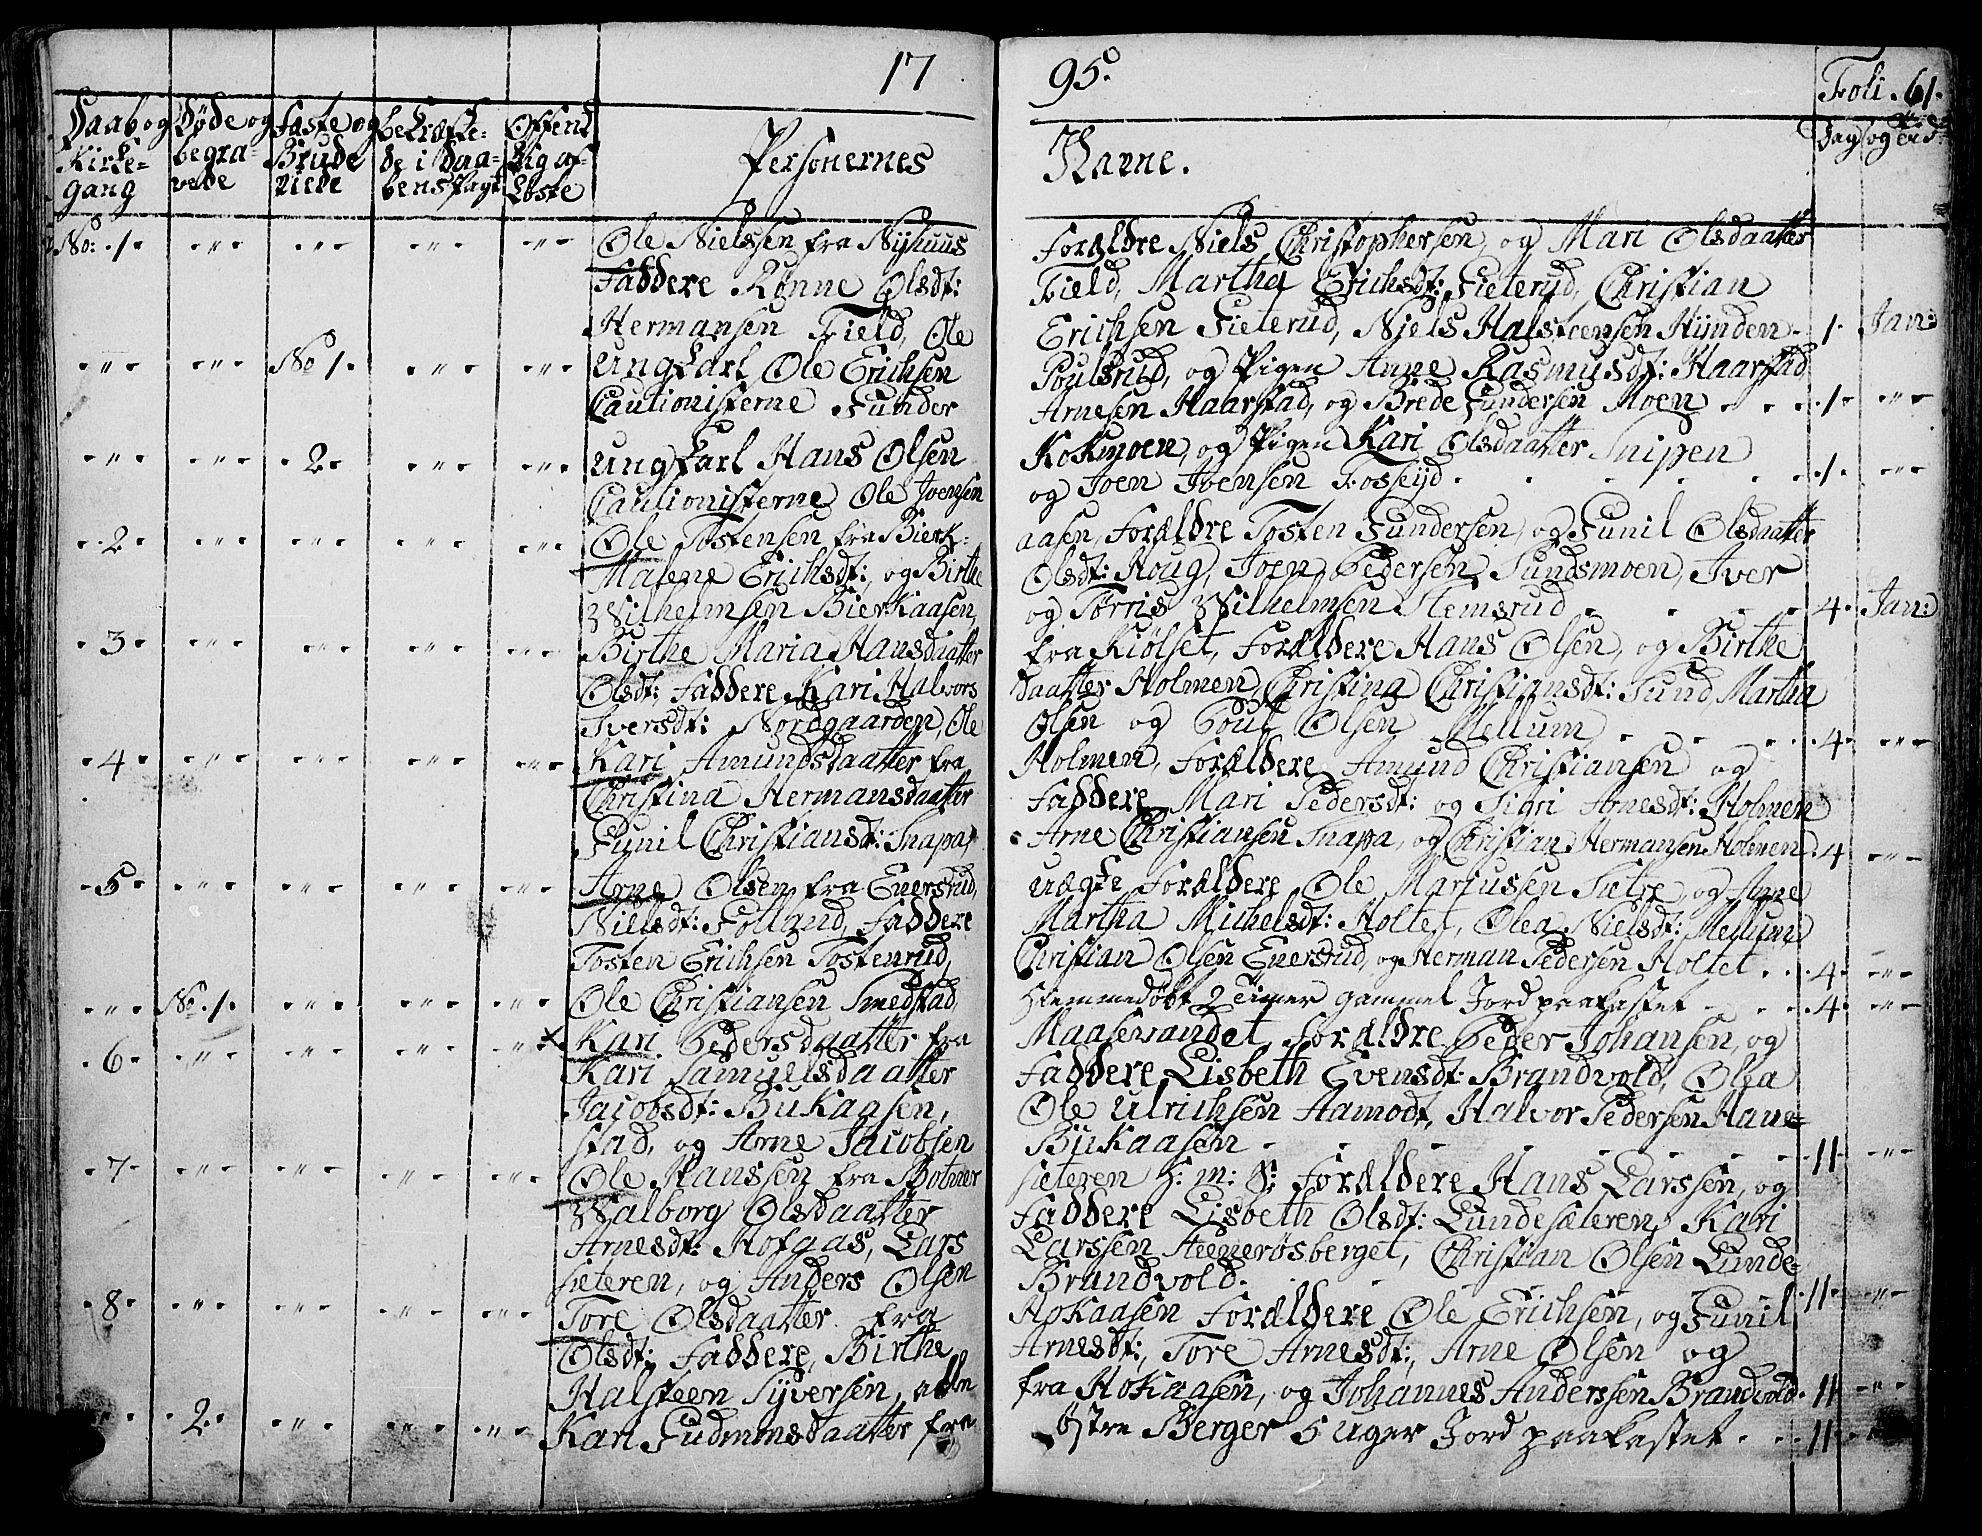 17 95.
Foli. 61.
Daab og Kirke- gang
Døde og begra- vede
Fæste og Brude viede
bekræfte- de i Daa- bens Pagt
Offend lig af- Løste
Personernes Navne.
Dag og
No: 1. Ole Nielssen fra Nÿhuus Forældre Niels Christophersen, og Mari Olsdaatter
Faddere Rønne Olsdt: Field, Martha Erichsdt: Sieterud, Christian
Hermansen Field, Ole Erichsen Sieterud, Niels Halsteensen Hÿnden 1. Jan:
No 1. Ungkarl Ole Erichsen Poulsrud, og Pigen Anne Rasmusdt: Haarstad
Cautionisterne Gunder Arnesen Haarstad, og Brede Gundersen Moen 1.
2. Ungkarl Hans Olsen Kokmoen, og Pigen Kari Olsdaatter Snipen
Cautionisterne Ole Ivensen og Joen Ivensen Fosseÿd 1.
2. Ole Tostensen fra Bierk- aasen, Forældre Tosten Gundersen, og Gunil Olsdaatter
Malene Erichsdt:, og Birthe Olsdt: Houg, Joen Pedersen Sundsmoen, Iver
Wilhelmsen Bierkaasen, og Tørris Wilhelmsen Stemsrud 4. Jan:
3. Birthe Maria Hansdaatter fra Kiølset, Forældere Hans Olsen, og Birthe
Olsdt: Faddere Kari Halvors daatter Holmen, Christina Christiansdt: Sund, Martha
Iversdt: Nordgaarden, Ole Olsen og Poul Olsen Mellum 4.
4. Kari Amundsdaatter fra Holmen, Forældere Amund Christiansen og
Christina Hermansdaatter Faddere Mari Pedersdt: og Sigri Arnesdt: Holmen
Gunil Christiansdt: Snapa, Arne Christiansen Snapa, og Christian Hermansen Holmen 4
5. Arne Olsen fra Enersrud, uægte Forældere Ole Mariusen Sætre, og Anne
Nielsdt: Folland, Faddere Martha Michelsdt: Holtet, Olea Nielsdt: Mellum
Tosten Erichsen Tostenrud, Christian Olsen Enersrud, og Herman Pedersen Holtet 4.
No. 1. Ole Christiansen Smedstad, Hiemmedøbt 2 Timer gammel Jord paakastet 4.
6. Kari Pedersdaatter fra Maasevandet, Forældre Peder Johansen, og
Kari Samuelsdaatter Faddere Lisbeth Evensdt: Brandvold, Olea
Jacobsdt: Bukaasen, Ole Ulrichsen Aamodt, Halvor Pedersen Haue-
stad, og Arne Jacobsen Bukaasen 11.
7. Ole Hanssen fra Botner sieteren H: m: S: Forældere Hans Larssen, og
Walborg Olsdaatter Faddere Lisbeth Olsdt: Lundesæteren, Kari
Arnesdt: Hofgas, Lars Larssen Steenerøsberget, Christian Olsen Lunde-
sieteren, og Anders Olsen Brandvold. 11
8. Tore Olsdaatter fra Hokaasen Forældere Ole Erichsen, og Gunil
Olsdt: Faddere, Birthe Arnesdt:, Tore Arnesdt:, Arne Olsen og
Halsteen Sÿversen, alle fra Hokaasen, og Johannes Anderssen Brandvold 11
2. Kari Gudmunsdaatter fra Østre Berger 5 uger Jord paakastet 11